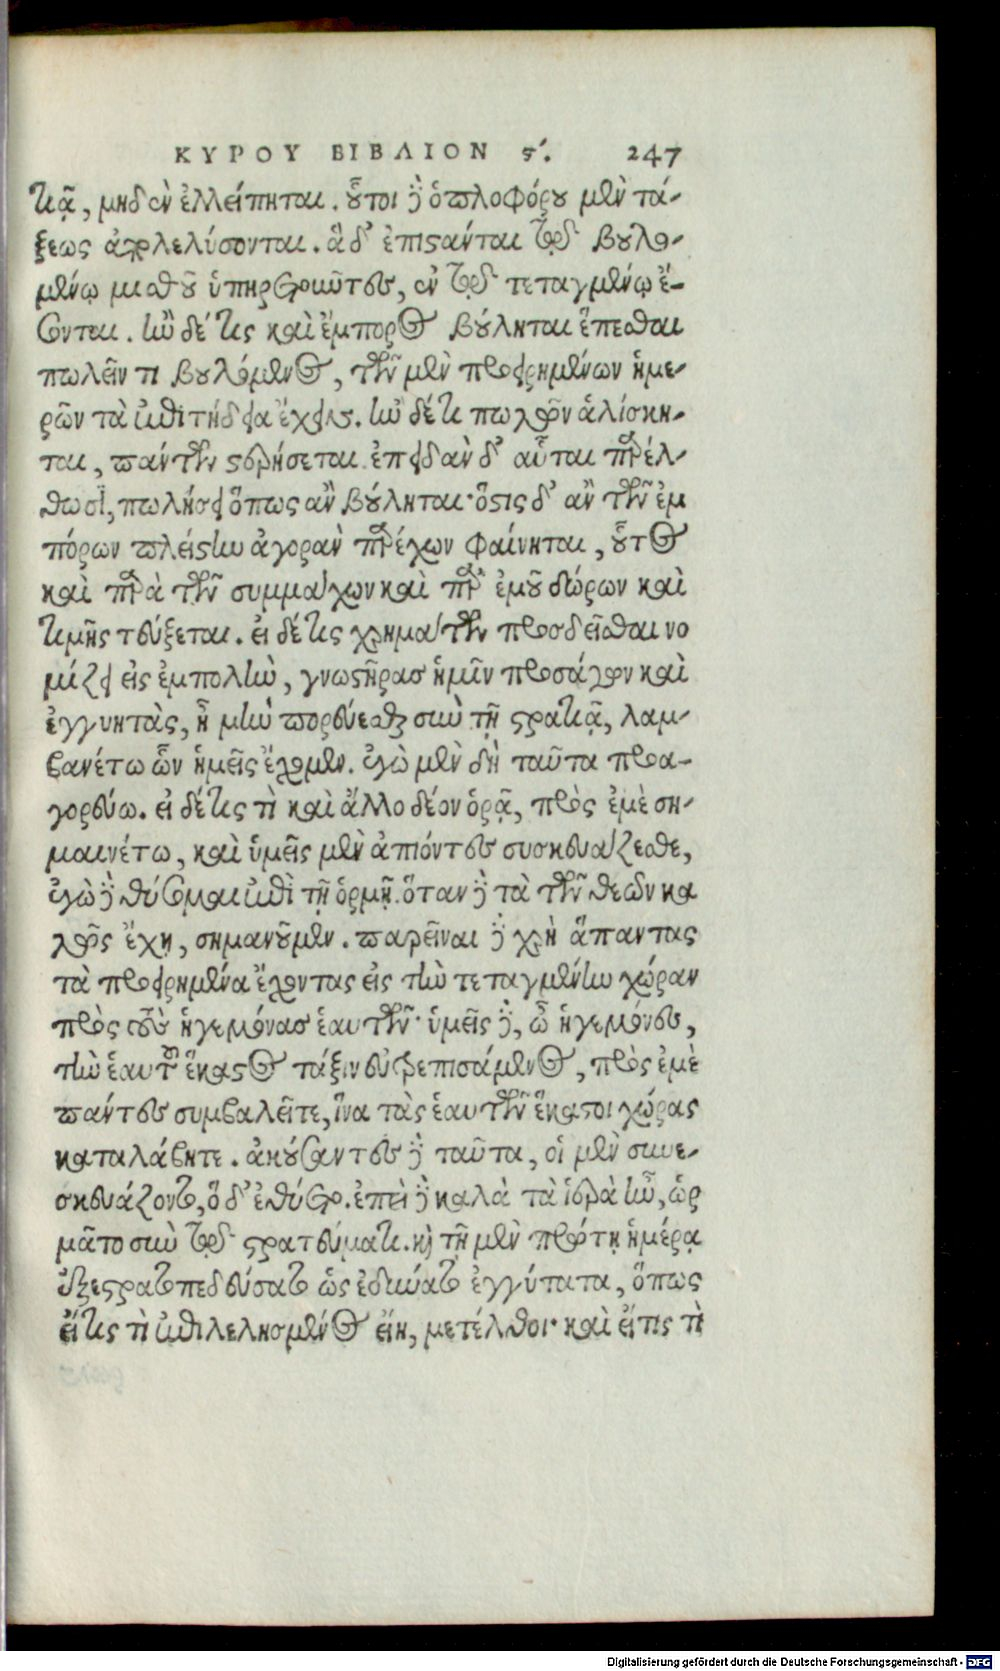 ΚΥΡΟΥ ΒΙΒΛΙΟΝ ϛʹ. 247
τιᾷ, μηδὲν ἐλλείπηται. οὗτοι δὲ ὁπλοφόρου μὲν τά-
ξεως ἀπολελύσονται. ἃ δ' ἐπίστανται τῷ βουλο-
μένῳ μισθοῦ ὑπηρετοῦντες, ἐν τῷ τεταγμένῳ ἔ-
σονται. ἢν δέ τις καὶ ἔμπορος βούληται ἕπεσθαι
πωλεῖν τι βουλόμενος, τῶν μὲν προειρημένων ἡμε-
ρῶν τὰ ἐπιτήδεια ἔχειν. ἢν δέ τι πωλῶν ἁλίσκη-
ται, πάντων στερήσεται. ἐπειδὰν δ' αὗται παρέλ-
θωσι, πωλήσει ὅπως ἂν βούληται· ὅστις δ' ἂν τῶν ἐμ
πόρων πλείστην ἀγορὰν παρέχων φαίνηται, οὗτος
καὶ παρὰ τῶν συμμάχων καὶ παρ' ἐμοῦ δώρων καὶ
τιμῆς τεύξεται. εἰ δέ τις χρημάτων προσδεῖσθαι νο
μίζει εἰς ἐμπολὴν, γνωστῆρας ἡμῖν προσάγων καὶ
ἐγγυητὰς, ἦ μὴν πορεύεσθαι σὺν τῇ στρατιᾷ, λαμ-
βανέτω ὧν ἡμεῖς ἔχομεν. ἐγὼ μὲν δὴ ταῦτα προα-
γορεύω. εἰ δέ τις τὶ καὶ ἄλλο δέον ὁρᾷ, πρὸς ἐμὲ ση-
μαινέτω, καὶ ὑμεῖς μὲν ἀπιόντες συσκευάζεσθε,
ἐγὼ δὲ θύσομαι ἐπὶ τῇ ὁρμῇ. ὅταν δὲ τὰ τῶν θεῶν κα
λῶς ἔχῃ, σημανοῦμεν. παρεῖναι δὲ χρὴ ἅπαντας
τὰ προειρημένα ἔχοντας εἰς τὴν τεταγμένην χώραν
πρὸς τοὺς ἡγεμόνας ἑαυτῶν· ὑμεῖς δὲ, ὦ ἡγεμόνες,
τὴν ἑαυτοῦ ἕκαστος τάξιν εὐτρεπισάμενος, πρὸς ἐμὲ
πάντες συμβαλεῖτε, ἵνα τὰς ἑαυτῶν ἕκαστοι χώρας
καταλάβητε. ἀκούσαντες δὲ ταῦτα, οἱ μὲν συνε-
σκευάζοντο, ὁ δ' ἐθύετο. ἐπεὶ δὲ καλὰ τὰ ἱερὰ ἦν, ὡρ
μᾶτο σὺν τῷ στρατεύματι. καὶ τῇ μὲν πρώτῃ ἡμέρᾳ
ἐξεστρατοπεδεύσατο ὡς ἐδύνατο ἐγγύτατα, ὅπως
εἴ τις τὶ ἐπιλελησμένος εἴη, μετέλθοι· καὶ εἴ τις τὶ
Digitalisierung gefördert durch die Deutsche Forschungsgemeinschaft - DFG